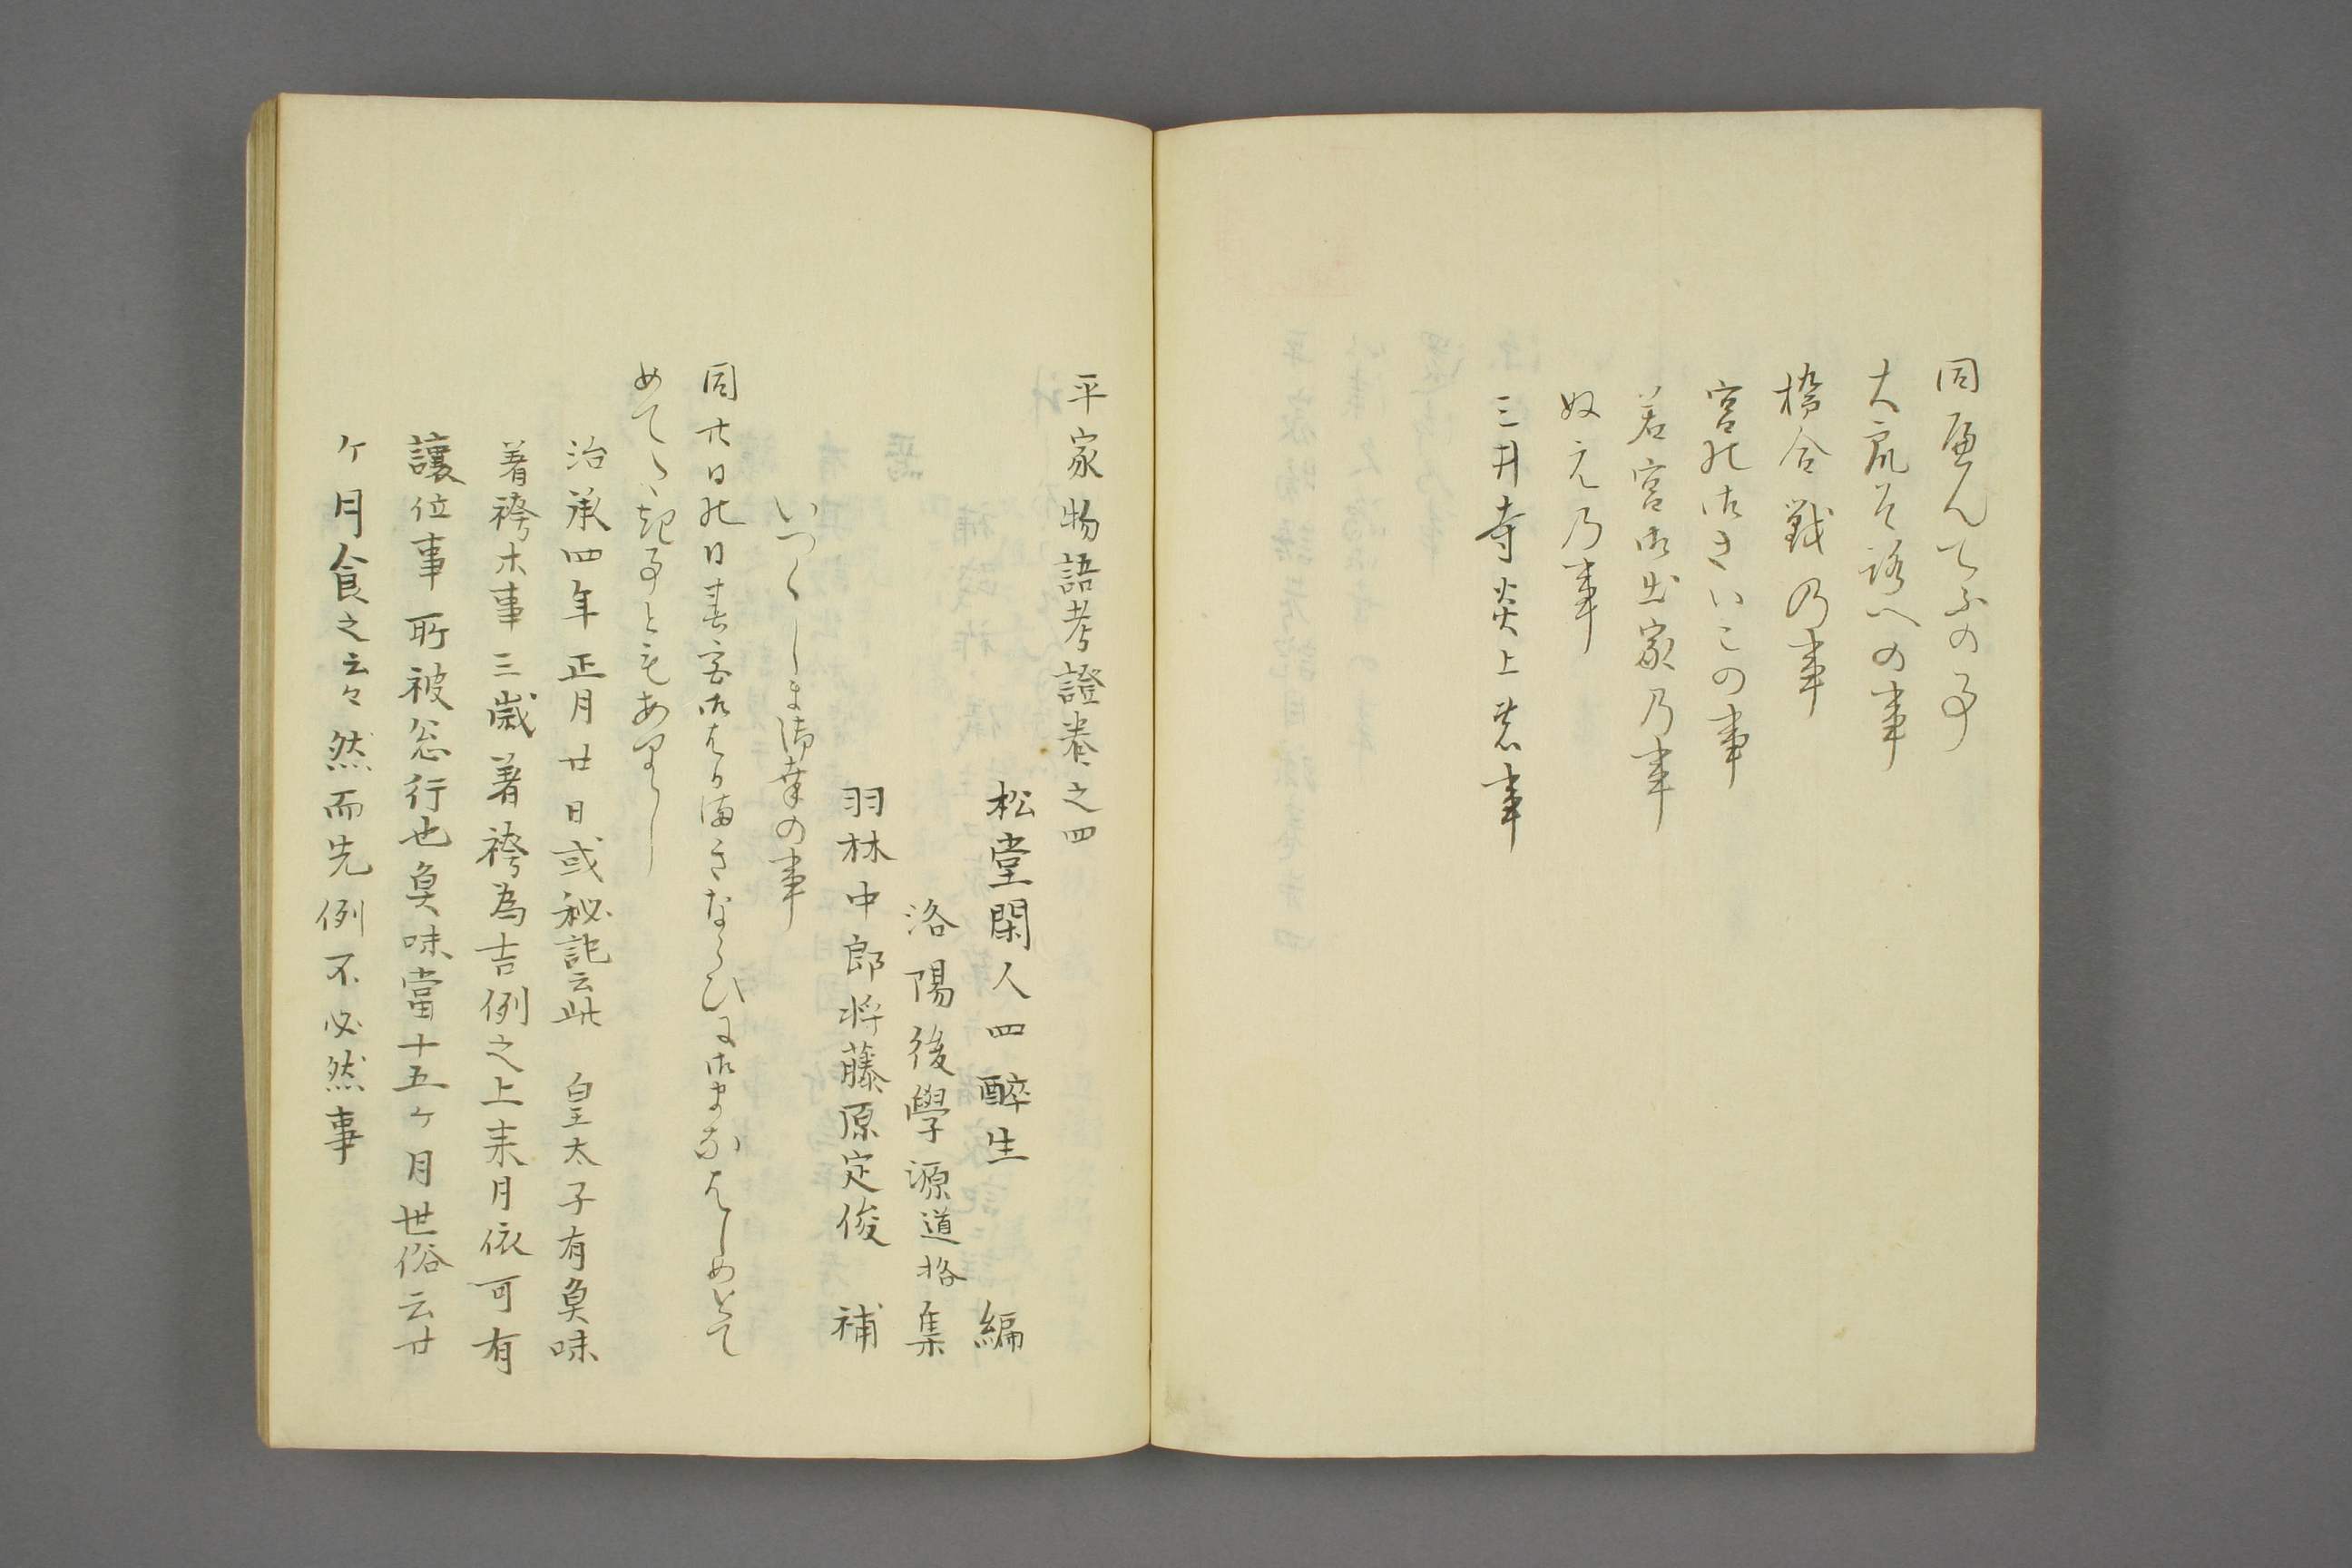 同へんてふの事
大衆そろへの事
橋合戦乃事
宮の御さいこの事
若宮御出家乃事
ぬえ乃事
三井寺炎上の事
平家物語考證巻之四
松堂閑人四醉生　編
洛陽後學源道格集
羽林中郎将藤原定俊　補
いつくしま御幸の事
同廿日の日春宮御はかまきならひに御まなはしめとて
めてたき事ともありし
治承四年正月廿日或秘記云此　皇太子有魚味
着袴ホ事三歳着袴為吉例之上来月依可有
讓位事所被忩行也魚味當十五ヶ月世俗云廿
ヶ月食之云々然而先例不必然事